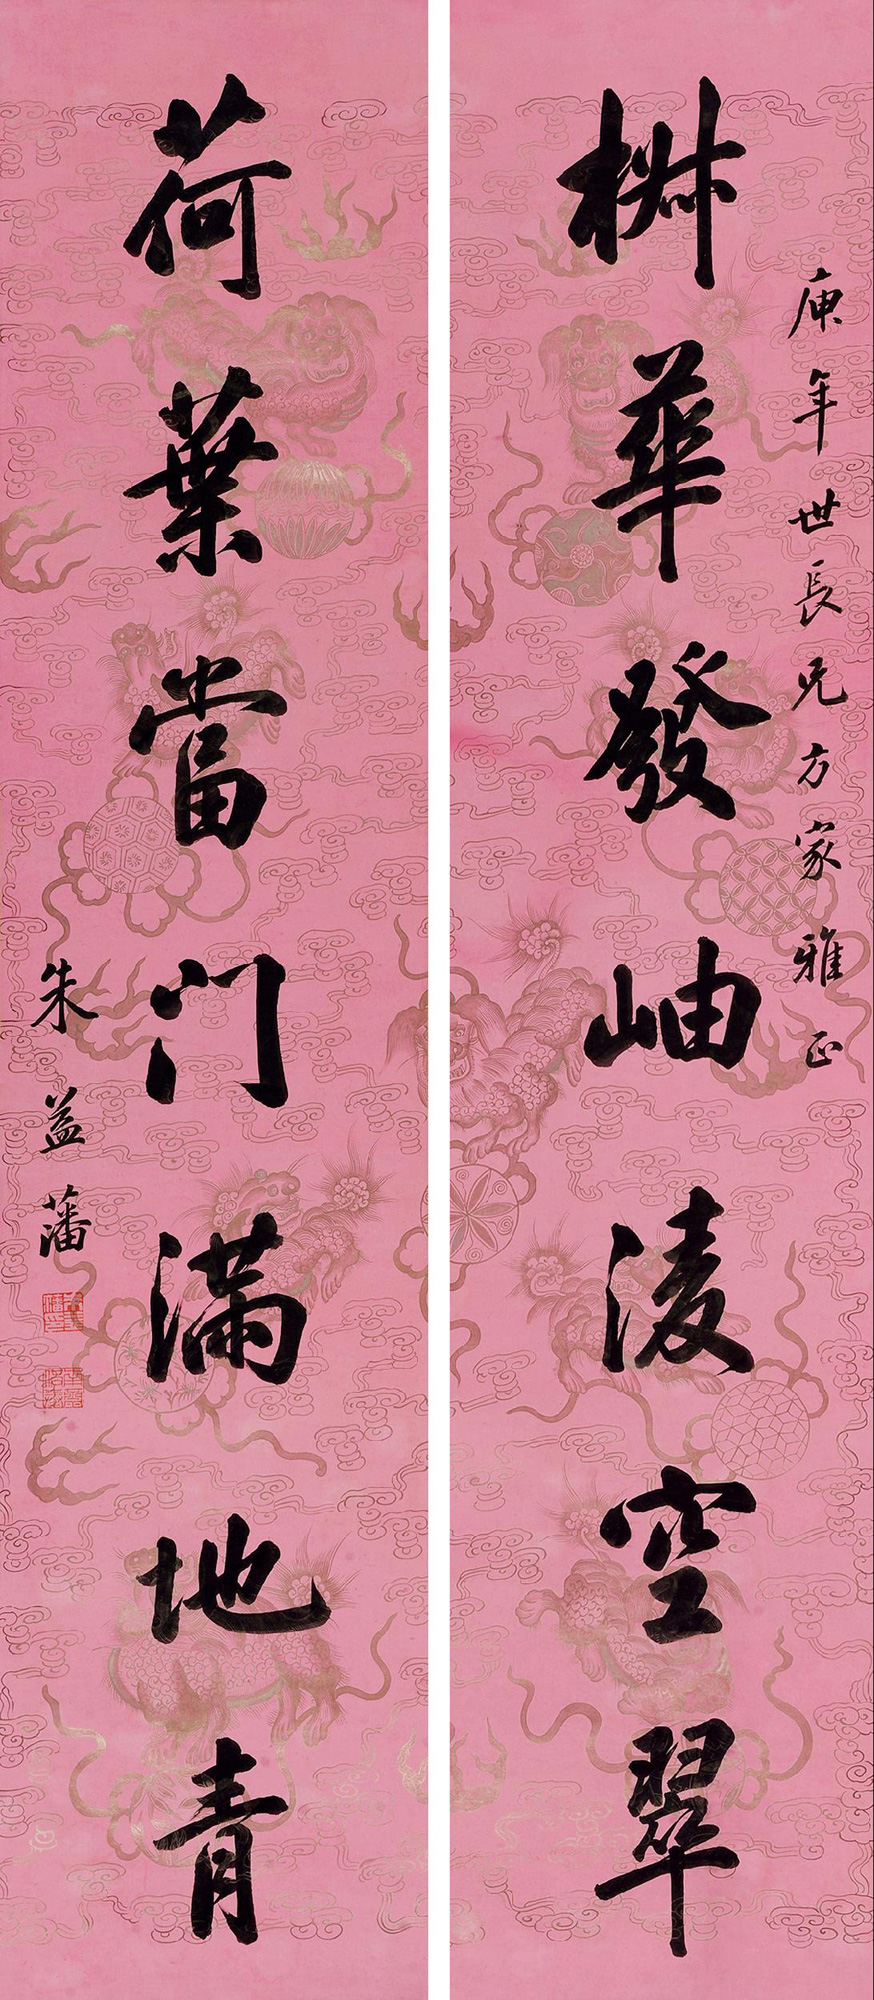 椒華發岫淩空翠
庚年世長兄方家雅正
荷葉當門滿地青
朱益藩